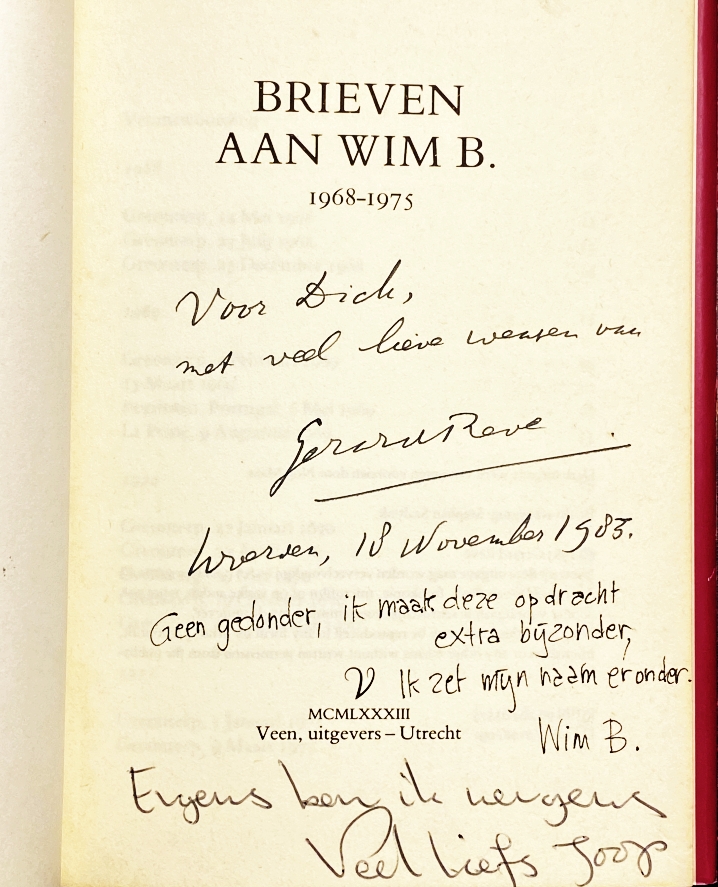 BRIEVEN
AAN WIM B.
1968-1975
Voor Dick,
met veel lieve wensen van
Gerard Reve
18 November 1983.
Geen gedonder, ik maak deze opdracht
extra bijzonder,
Ik zet mijn naam eronder.
MCMLXXXIII
Veen, uitgevers – Utrecht
Wim B.
Ergens ben ik nergens
Veel liefs Joop